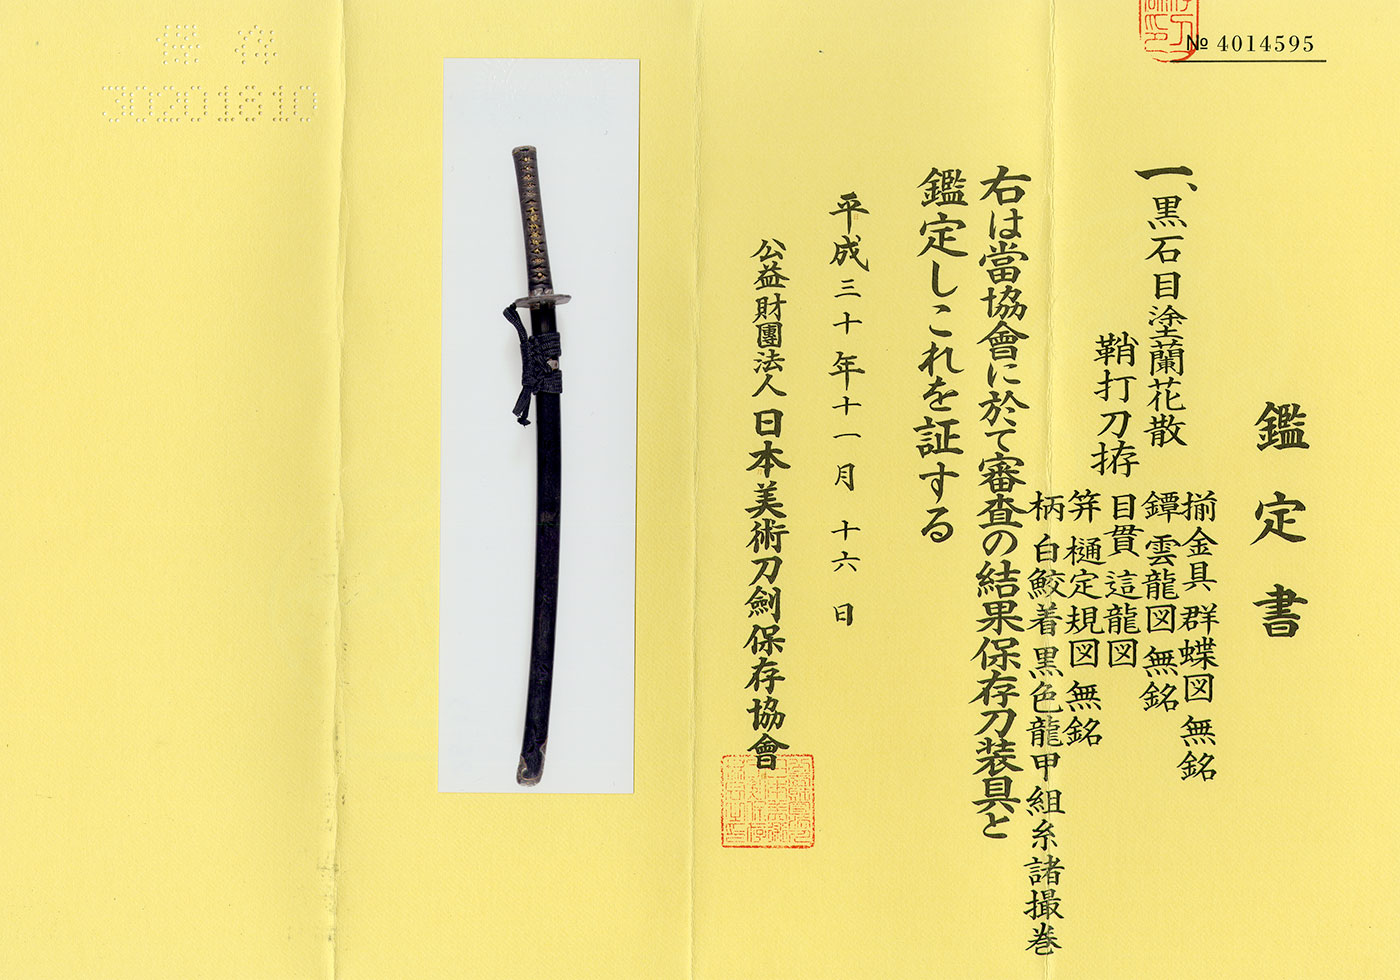 № 4014595
鑑定書
一、黒石目塗蘭花散
鞘打刀拵
揃金具 群蝶図 無銘
鐔 雲龍図 無銘
目貫 這龍図
笄 樋定規図 無銘
柄 白鮫着黒色龍甲組糸諸撮巻
右は當協會に於て審査の結果保存刀装具と
鑑定しこれを証する
平成三十年十一月十六日
公益財團法人日本美術刀劍保存協會
保存
30201810